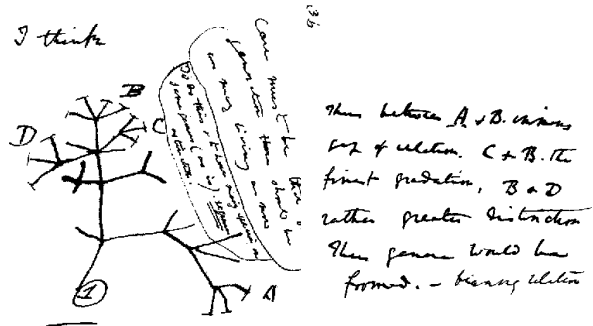 36
I think
B
C
D
A
1
Case must be that one
generation then should be
as many living as now
To do this & to have many species in
same genus (as is). requires
extinction.
Thus between A & B. immens
gap of relation. C & B. the
finest gradation, B & D
rather greater distinction
Thus genera would be
formed. — bearing relation